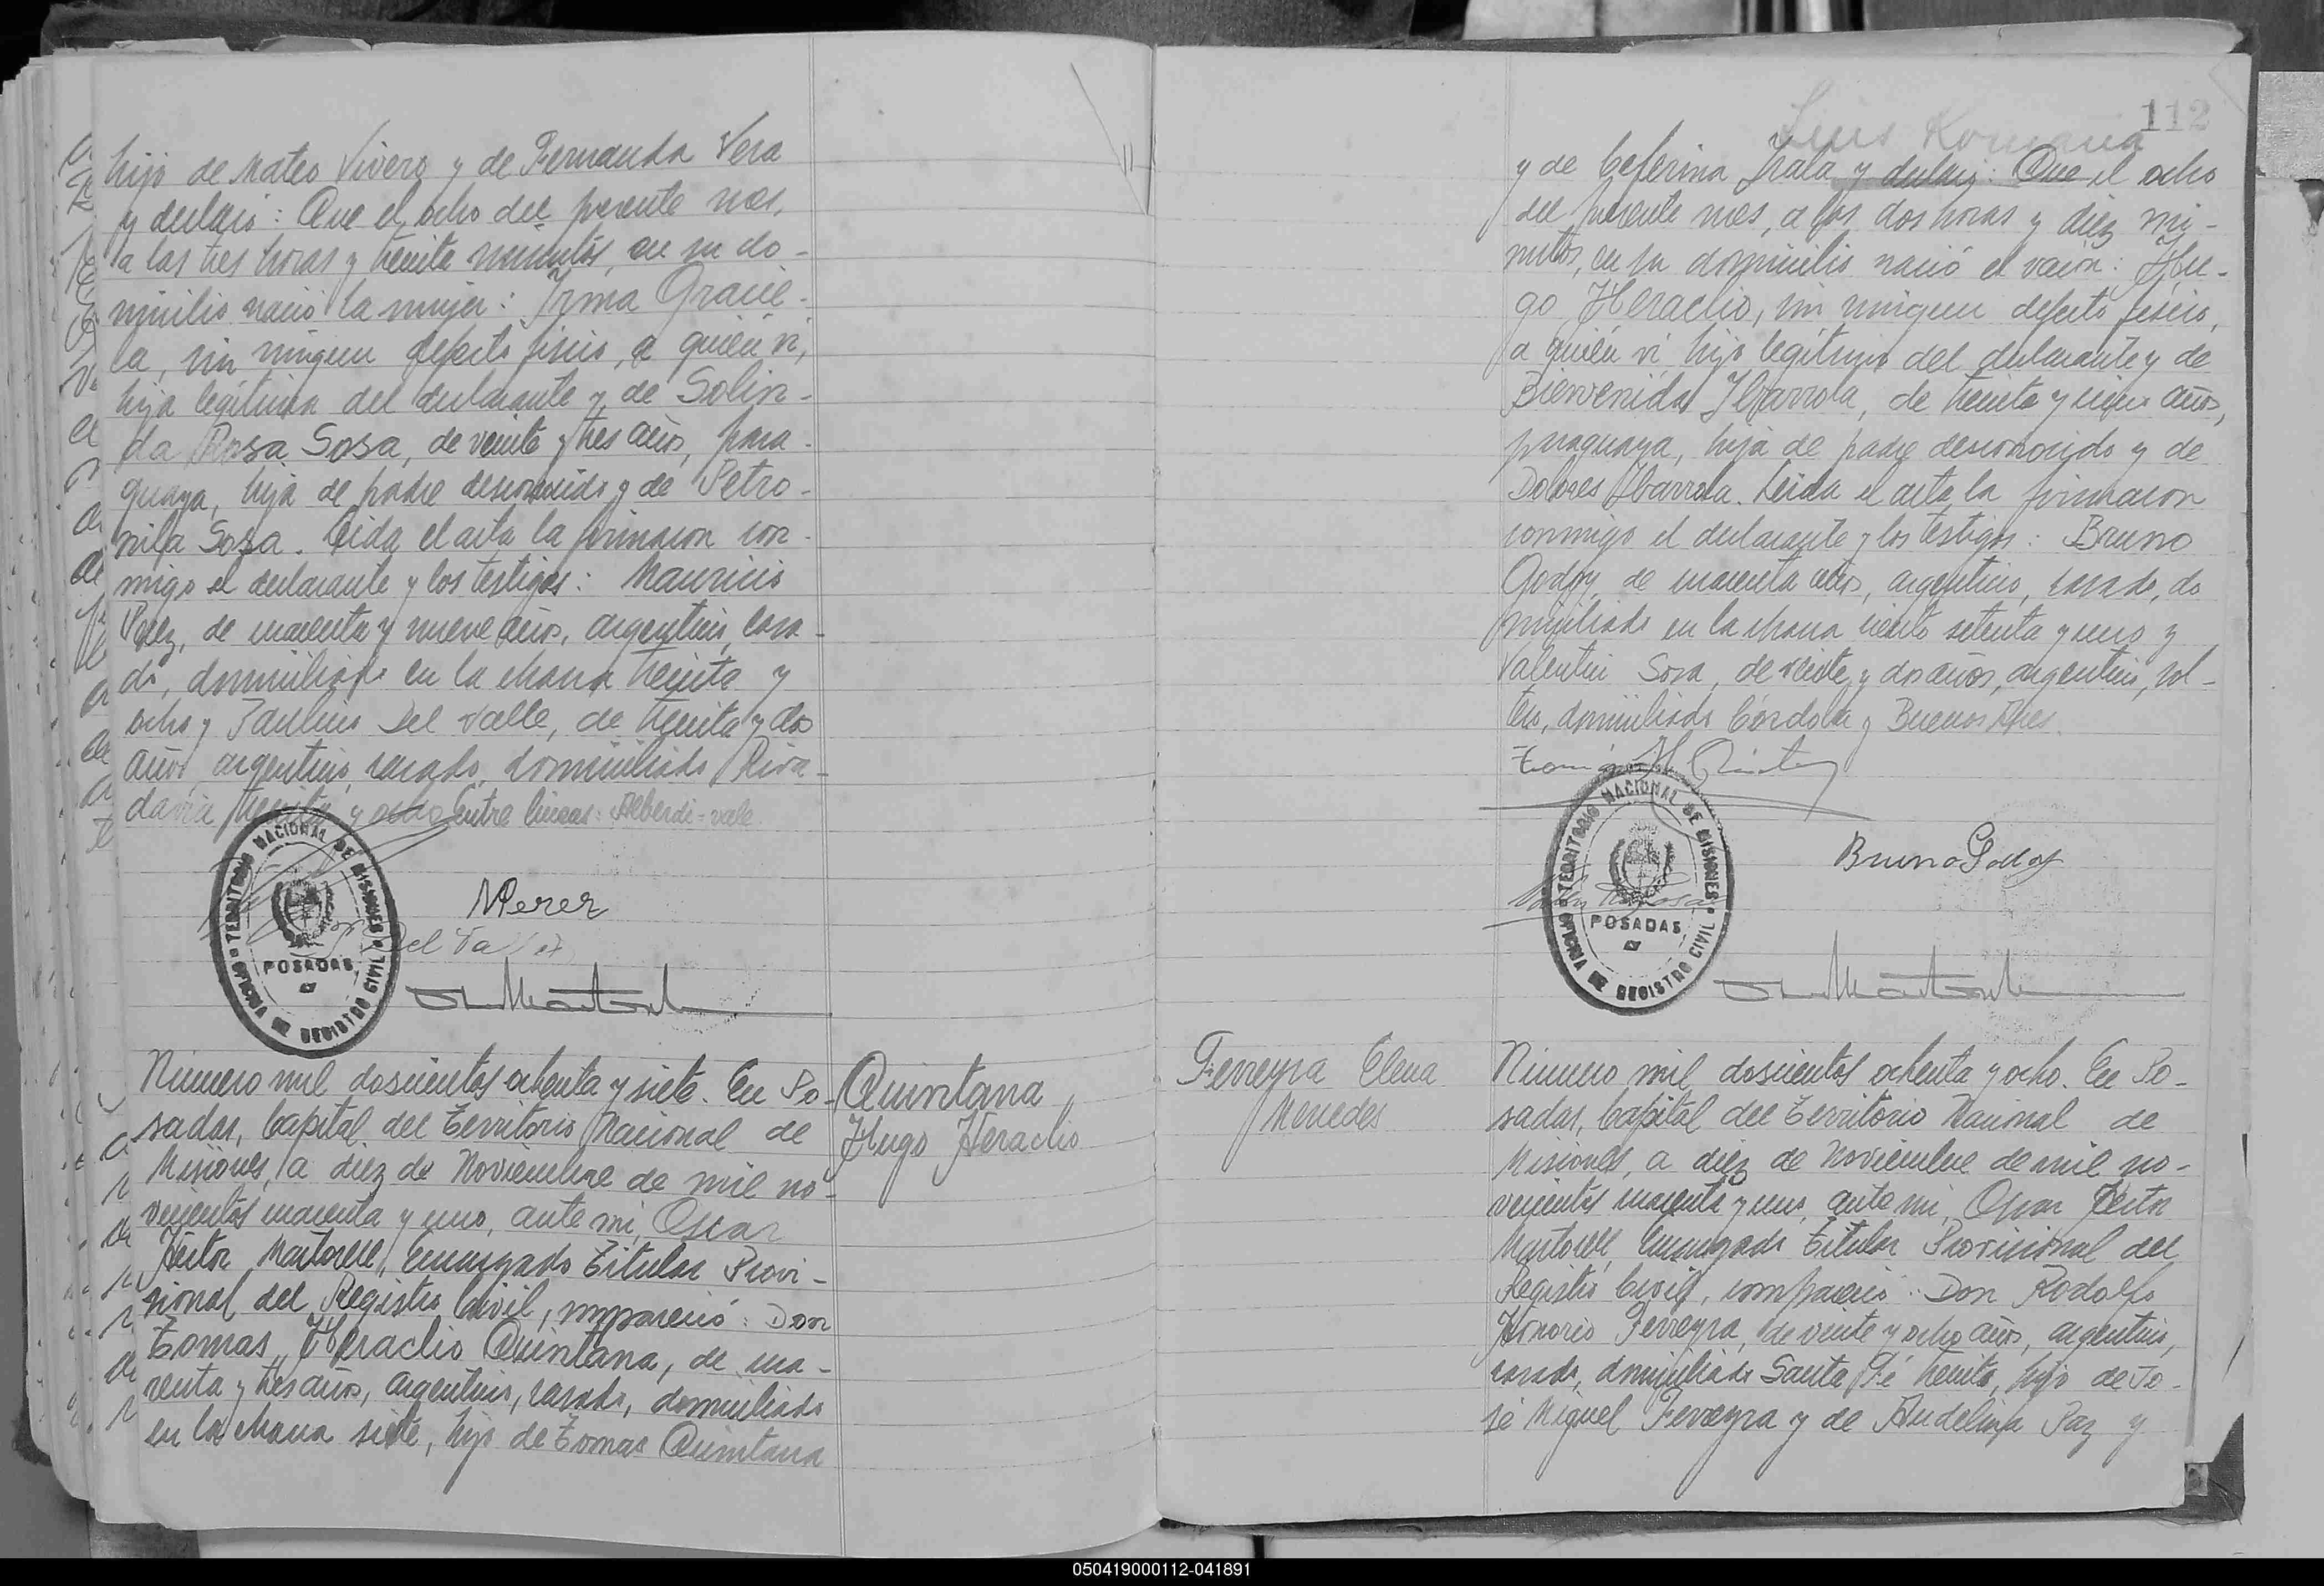 hijo de Mateo Vivero y de Fernanda Vera
y declaró: Que el ocho del presente mes,
a las tres horas y treinta minutos, en su do-
micilio nació la mujer: Irma Gracie-
la, sin ningun defecto fisico, a quién vi,
hija legítima del declarante y de Solin-
da Rosa Sosa, de veinte y tres años, para-
guaya, hija de padre desconocido y de Petro-
nila Sosa. Leida el acta la firmaron con-
migo el declarante y los testigos: Mauricio
Perez, de cuarenta y nueve años, argentino, casa-
do, domiciliado en la chacra treinta y
ocho y Paulino Del Valle, de treinta y dos
años, argentino, casado, domiciliado Riva-
davia treinta y ocho Entre lineas: Alberdi = vale.
TERRITORIO NACIONAL DE MISIONES
POSADAS
OFICINA DE REGISTRO CIVIL
MPerez
Del Valle
Número mil doscientos ochenta y siete. En Po-
sadas, Capital del Territorio Nacional de
Misiones, a diez de Noviembre de mil no-
vecientos cuarenta y uno, ante mi, Oscar
Héctor Martorell, Encargado Titular Provi-
sional del Registro Civil, compareció: Don
Tomas Heraclio Quintana, de cua-
renta y tres años, argentino, casado, domiciliado
en la chacra siete, hijo de Tomas Quintana
Quintana
Hugo Heraclio
112
Luis Romana
y de Ceferina Irala y declaró: Que el ocho
del presente mes, a las dos horas y diez mi-
nutos, en su domicilio nació el varón: Hu-
go Heraclio, sin ningun defecto fisico,
a quién vi hijo legítimo del declarante y de
Bienvenida Ibarrola, de treinta y cinco años,
paraguaya, hija de padre desconocido y de
Dolores Ibarrola. Leida el acta la firmaron
conmigo el declarante y los testigos: Bruno
Godoy, de cuarenta años, argentino, casado, do
miciliado en la chacra ciento setenta y uno y
Valentin Sosa, de veinte y dos años, argentino, sol-
tero, domiciliado Córdoba y Buenos Aires.
Tomás H Quintana
TERRITORIO NACIONAL DE MISIONES
POSADAS
OFICINA DE REGISTRO CIVIL
Bruno Godoy
Ferreyra Elena
Mercedes
Número mil doscientos ochenta y ocho. En Po-
sadas, Capital del Territorio Nacional de
Misiones, a diez de Noviembre de mil no-
vecientos cuarenta y uno, ante mi, Oscar Héctor
Martorell, Encargado Titular Provisional del
Registro Civil, compareció: Don Rodolfo
Honorio Ferreyra, de veinte y ocho años, argentino,
casado, domiciliado Santa Fé treinta, hijo de Jo-
sé Miguel Ferreyra y de Audelina Paz y
050419000112-041891